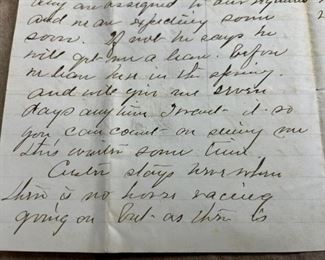 they are assigned to our regiment
and we are expecting some
soon. If not he says he
will get me a leave. Before
we leave here in the spring
and will give me seven
days any time I want it so
you can count on seeing me
this winter some time.
Custer stays here when
there is no horse racing
going on but as there is